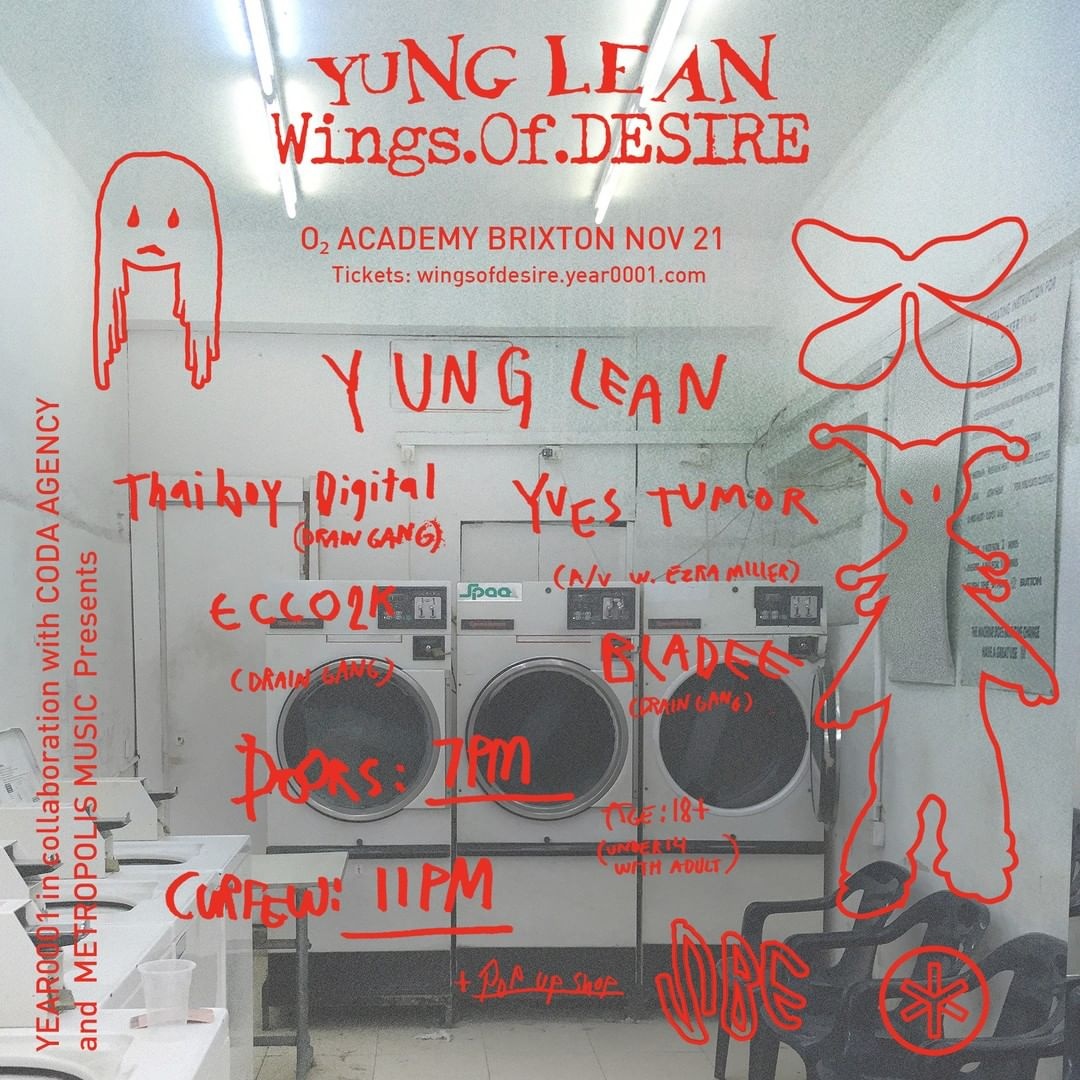 YUNG LEAN
Wings.Of.DESIRE
O₂ ACADEMY BRIXTON NOV 21
Tickets: wingsofdesire.year0001.com
YUNG LEAN
Thaiboy Digital
(DRAIN GANG)
YVES TUMOR
(A/V W. EZRA MILLER)
ECCO2K
(DRAIN GANG)
BLADEE
(DRAIN GANG)
DOORS: 7PM
AGE: 18+
(UNDER 14
WITH ADULT)
CURFEW: 11PM
+ POP UP SHOP
YEAR0001 in collaboration with CODA AGENCY
and METROPOLIS MUSIC Presents
Spaa
BUTTON
HAVE A GREAT USE